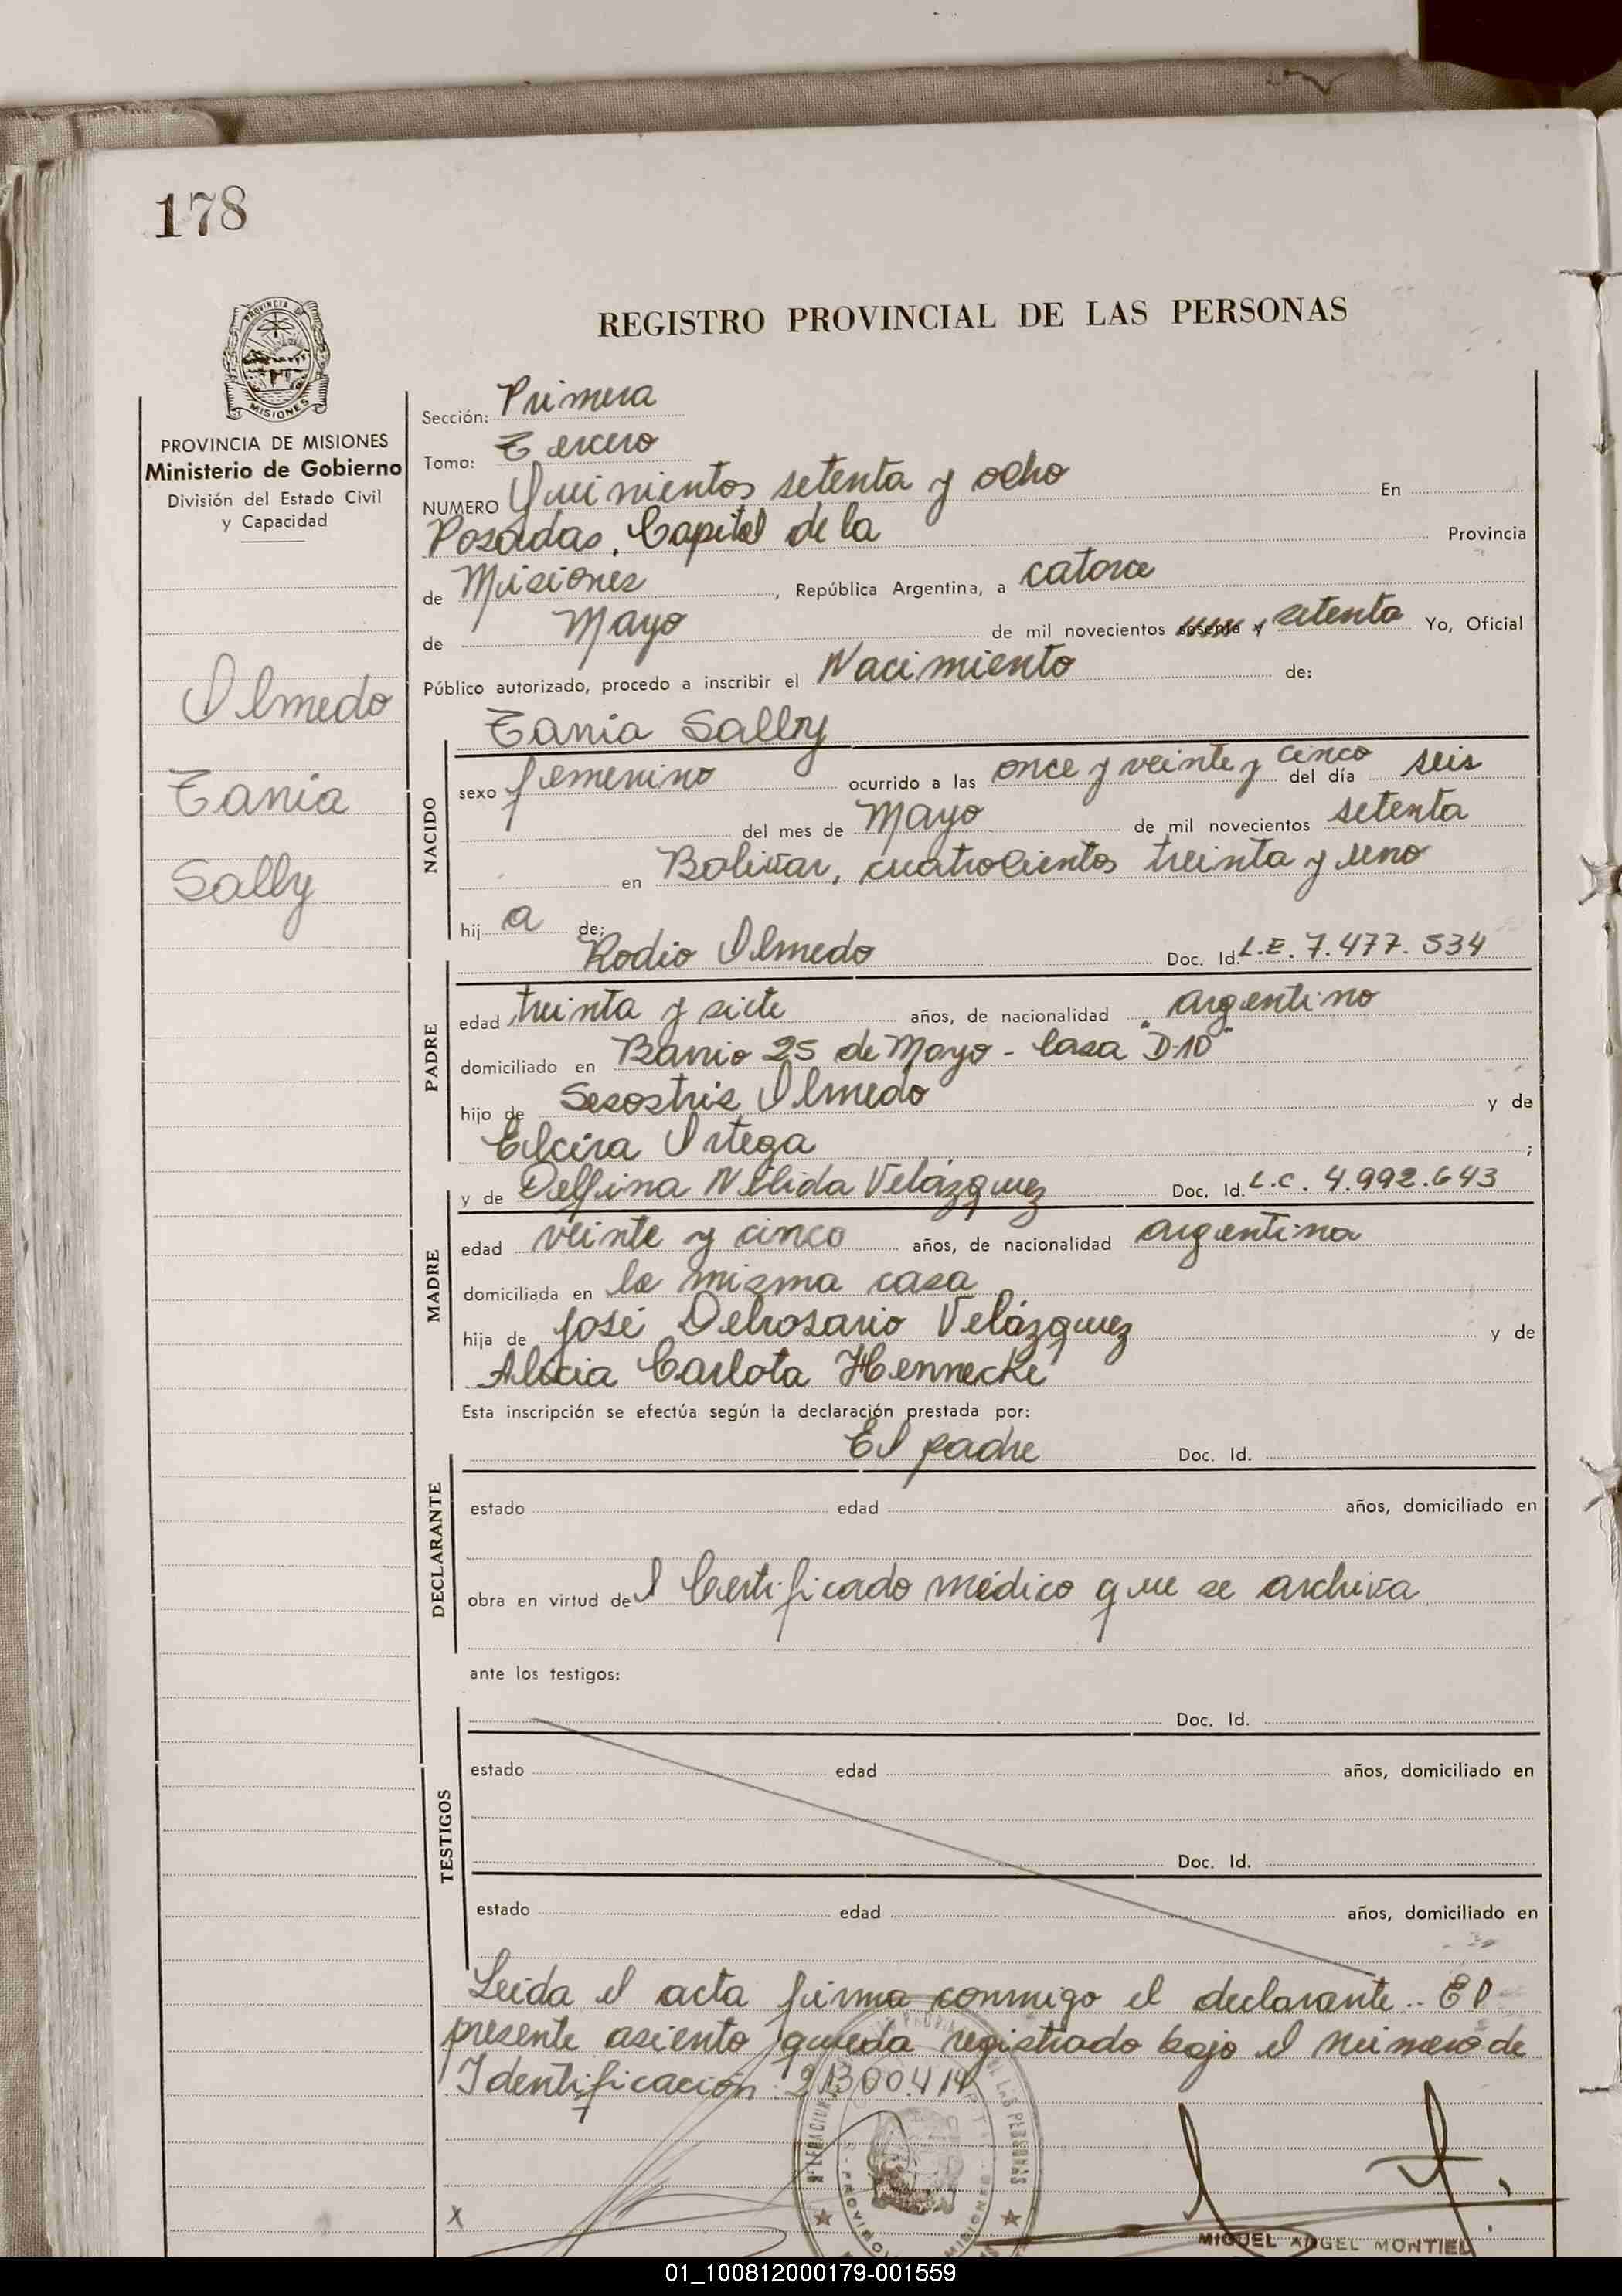 178
PROVINCIA DE
MISIONES
REGISTRO PROVINCIAL DE LAS PERSONAS
PROVINCIA DE MISIONES
Ministerio de Gobierno
División del Estado Civil
y Capacidad
Olmedo
Tania
Sally
Sección: Primera
Tomo: Tercero
NUMERO Quinientos setenta y ocho En
Posadas, Capital de la Provincia
de Misiones, República Argentina, a catorce
de Mayo de mil novecientos sesenta y setenta Yo, Oficial
Público autorizado, procedo a inscribir el Nacimiento de:
Tania Sally
NACIDO
sexo femenino ocurrido a las once y veinte y cinco del día seis
del mes de Mayo de mil novecientos setenta
en Bolivar, cuatrocientos treinta y uno
hij a de:
Rodio Olmedo Doc. Id. L.E. 7.477.534
PADRE
edad treinta y siete años, de nacionalidad argentino
domiciliado en Barrio 25 de Mayo - Casa "D-10"
hijo de Sesostris Olmedo y de
Elcira Ortega ;
y de Delfina Nélida Velázquez Doc. Id. L.C. 4.992.643
MADRE
edad veinte y cinco años, de nacionalidad argentina
domiciliada en la misma casa
hija de José Delrosario Velázquez y de
Alicia Carlota Hennecke
Esta inscripción se efectúa según la declaración prestada por:
El padre Doc. Id.
DECLARANTE
estado edad años, domiciliado en
obra en virtud del Certificado médico que se archiva
ante los testigos:
TESTIGOS
Doc. Id.
estado edad años, domiciliado en
Doc. Id.
estado edad años, domiciliado en
Leida el acta firma conmigo el declarante.. El
presente asiento queda registrado bajo el número de
Identificación: 21300.414
X
MIGUEL ANGEL MONTIEL
01_100812000179-001559